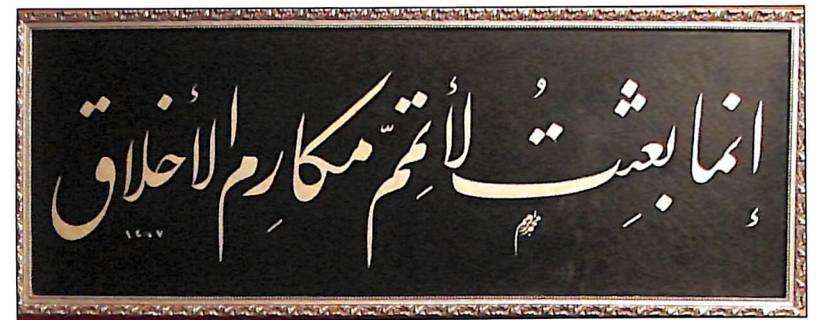 إنما بعثتُ لأتمّ مكارم الأخلاق
١٤٠٧